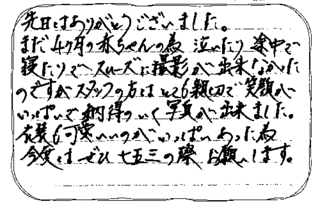 先日はありがとうございました。
まだ4ヶ月の赤ちゃんの為 泣いたり 途中で
寝たりでスムーズに撮影が出来なかった
のですがスタッフの方はとても親切で笑顔が
いっぱいで納得のいく写真が出来ました。
衣装も可愛いのがいっぱいあった為
今度はぜひ七五三の際 お願いします。